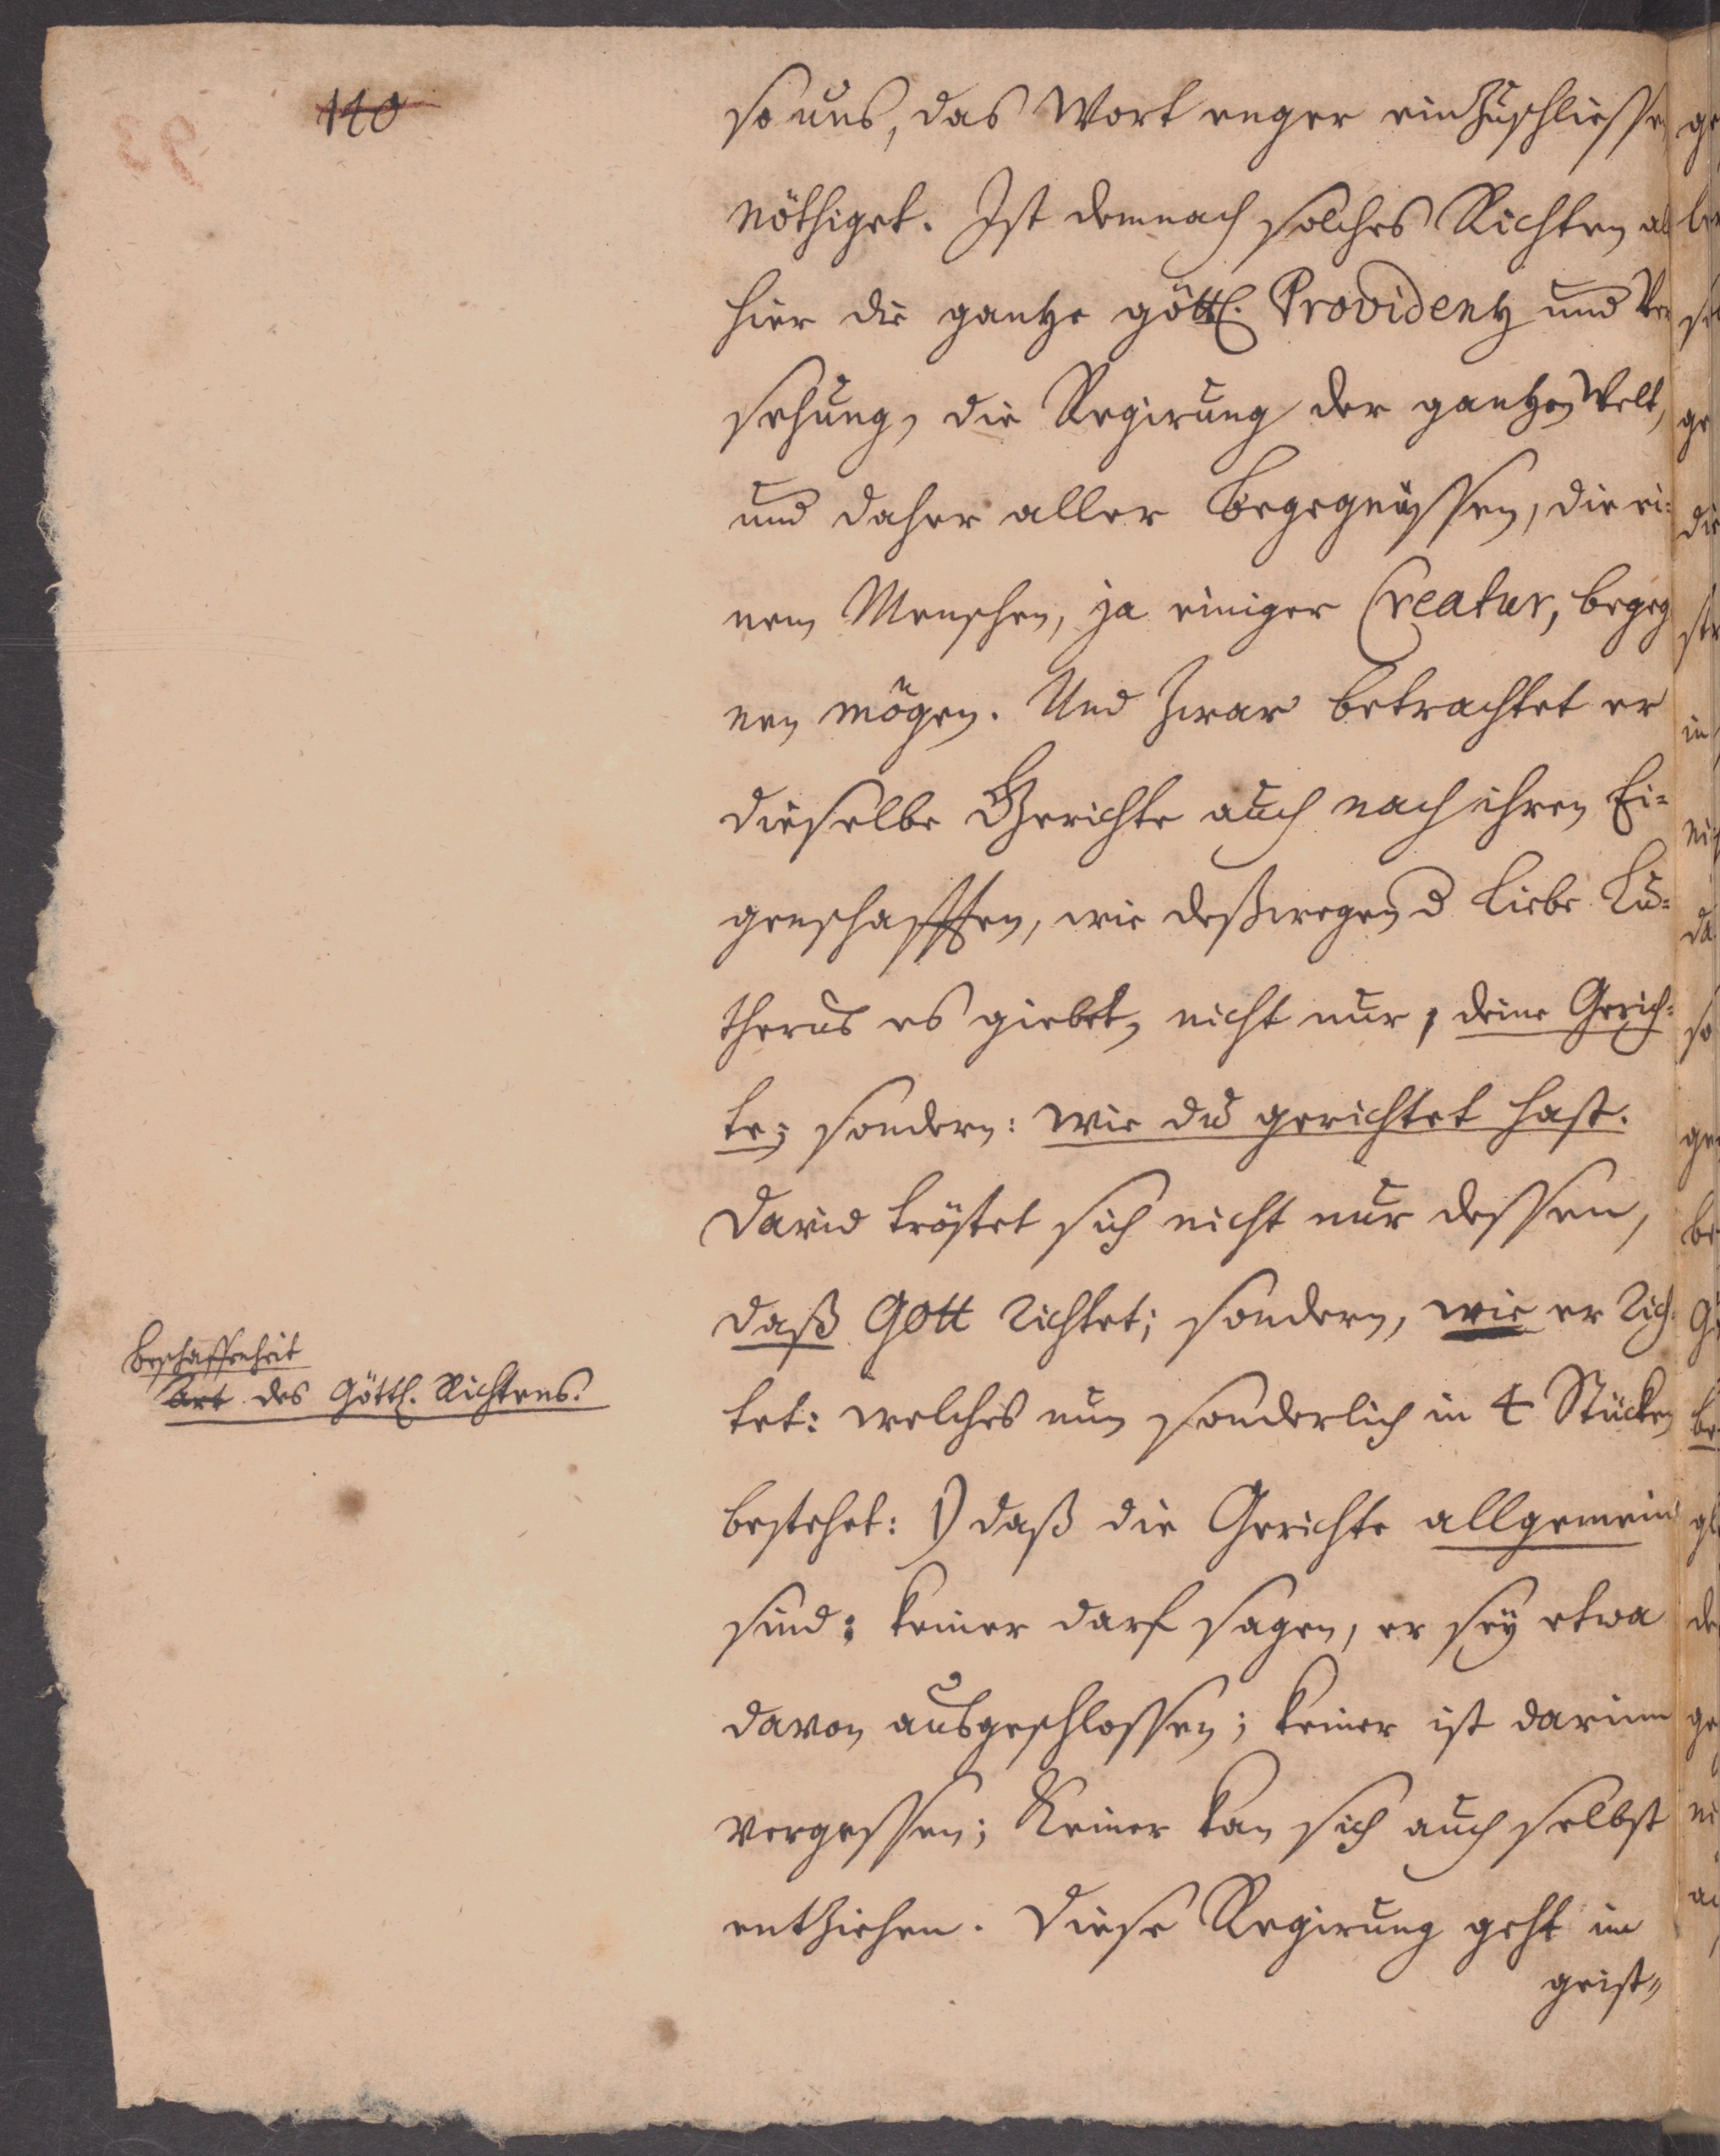 110
so uns, das Wort enger einzuschliessen
nöthiget. Ist demnach solches Richten al
hier die gantze göttl. Providentz und Ver
sehung, die Regirung der gantzen Welt,
und daher aller Begegnüssen, die ei-
nem Menschen, ja einiger Creatur, begeg
nen mögen. Und zwar betrachtet er
dieselbe Gerichte auch nach ihren Ei-
genschafften, wie deßwegen d liebe Lu-
therus es giebet, nicht nur, deine Gerich-
te; sondern: wie du gerichtet hast.
David tröstet sich nicht nur dessen,
daß Gott richtet; sondern, wie er rich-
tet: welches nun sonderlich in 4 Stücken
bestehet: 1) daß die Gerichte allgemein
sind: keiner darf sagen, er seÿ etwa
davon ausgeschlossen; keiner ist darinn
vergessen; Keiner kan sich auch selbst
entziehen. Diese Regirung geht im
geist-
Beschaffenheit
Art des Göttl. Richtens.
93